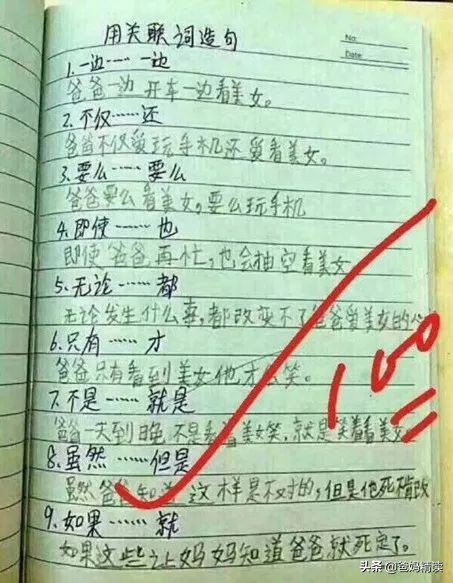 用关联词造句
No:
Date:
1.一边……一边
爸爸一边开车一边看美女。
2.不仅……还
爸爸不仅爱玩手机还爱看美女。
3.要么……要么
爸爸要么看美女,要么玩手机
4.即使……也
即使爸爸再忙,也会抽空看美女
5.无论……都
无论发生什么事,都改变不了爸爸爱美女的心
6.只有……才
爸爸只有看到美女他才么笑。
7.不是……就是
爸爸一天到晚不是看着美女笑,就是笑着看美女。
8.虽然……但是
虽然爸爸知道这样是不对的,但是他死精改
9.如果……就
如果这些让妈妈知道爸爸就死定了。
100
头条@爸妈精读